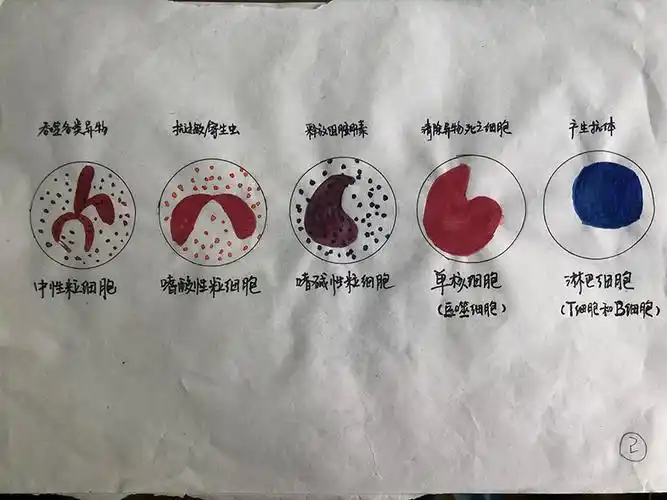 吞噬各类异物
抗过敏/寄生虫
释放组胺肝素
清除异物死亡细胞
产生抗体
中性粒细胞
嗜酸性粒细胞
嗜碱性粒细胞
单核细胞
(巨噬细胞)
淋巴细胞
(T细胞和B细胞)
2